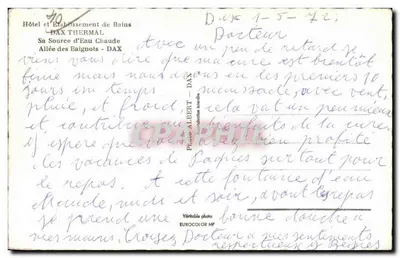 10
Hôtel et Etablissement de Bains
DAX THERMAL
Sa Source d'Eau Chaude
Allée des Baignots - DAX
Dax 1-5-72.
Docteur
Avec un peu de retard je
viens vous dire que ma cure est bientôt
finie mais nous avons eu les premiers 10
jours un temps maussade, avec vent,
pluie, et froid, cela va un peu mieux
et contribue aux bienfaits de la cure.
J'espère que vous avez bien profité
des vacances de Pâques surtout pour
le repos. A cette fontaine d'eau
chaude, midi et soir, avant le repas
je prend une bonne douche a
mes mains. Croisez Docteur a mes sentiments
respectueux
Photo ALBERT - DAX
Reproduction interdite
CPARAMA
Véritable photo
EUROCOLOR MF